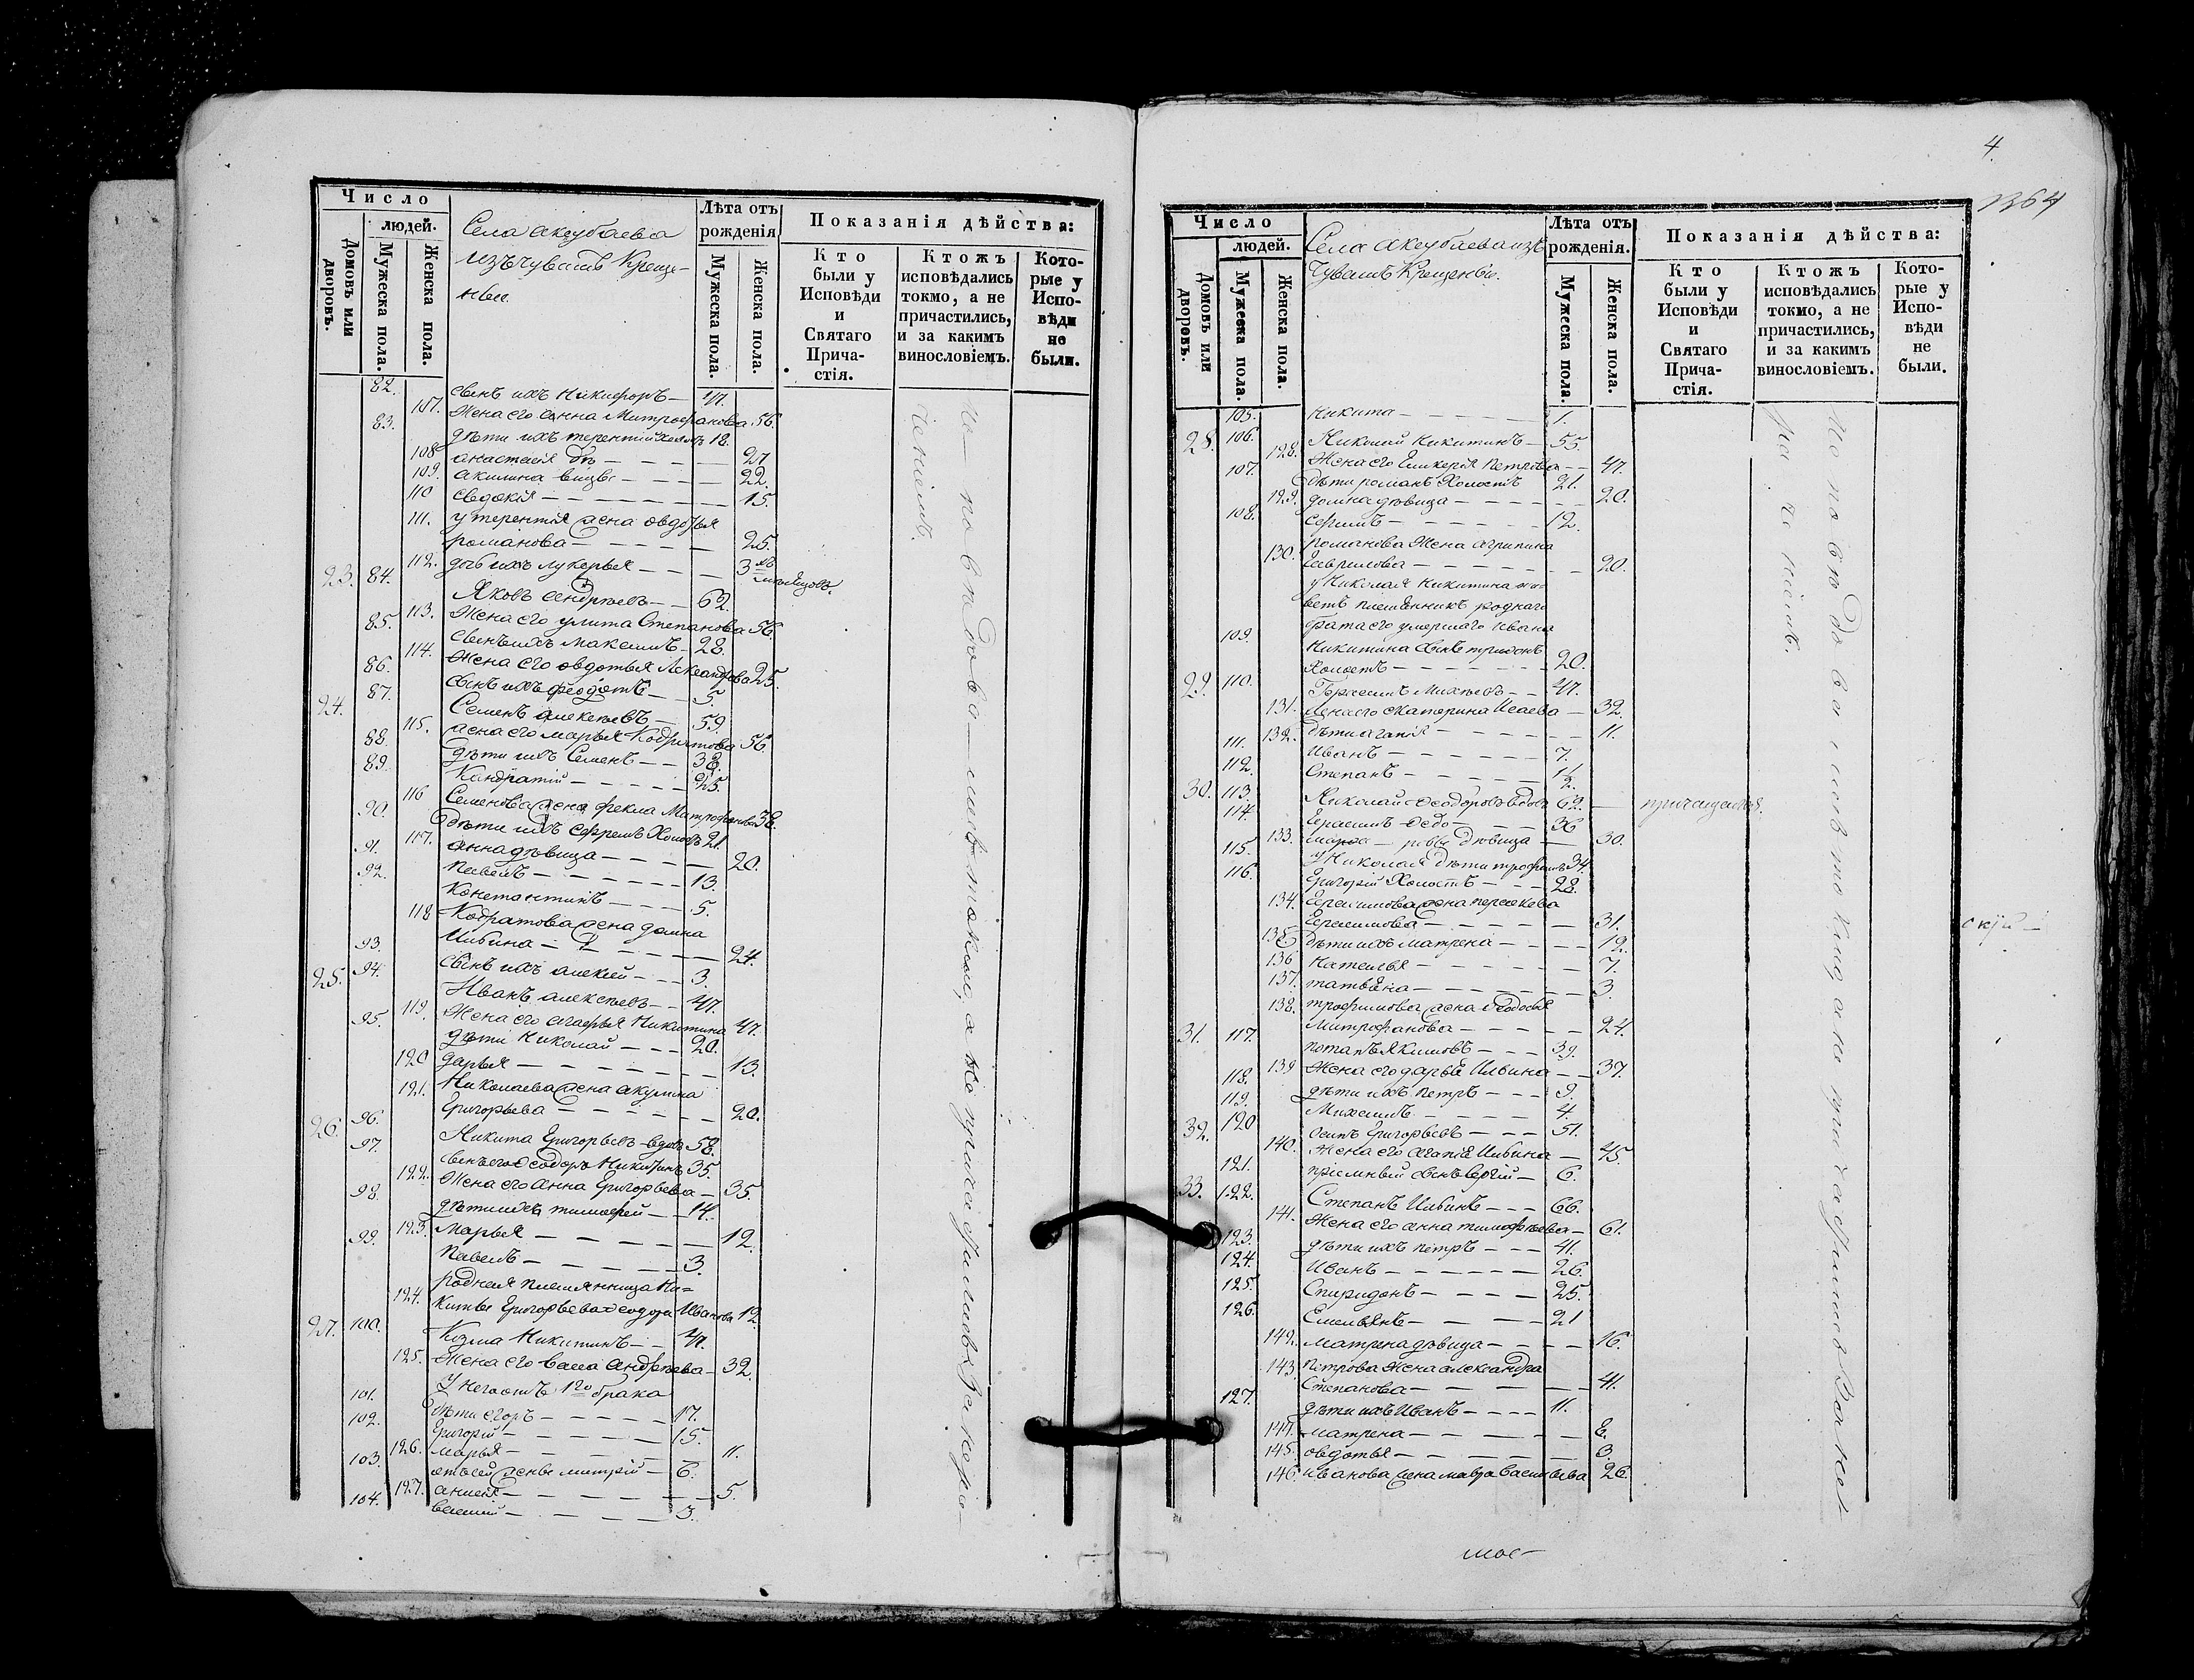 Число
людей.
Домовъ или дворовъ.
Мужеска пола.
Женска пола.
Села Аксубаева
изъ чувашъ Креще-
ныи
Лѣта отъ рожденія
Мужеска пола.
Женска пола.
Показанія дѣйства:
Кто были у Исповѣди и Святаго Прича-стія.
Ктожъ исповѣдались токмо, а не причастились, и за какимъ винословіемъ.
Кото-рые у Испо-вѣди не были.
82. сынъ ихъ Никифоръ — 47.
107. Жена его Анна Митрофанова 56.
83. дѣти ихъ терентій 18.
108 анастасія — 27
109. акилина — 22.
110 евдокія — 15.
111. у терентія жена овдотья
романова — 25.
112. дочь ихъ лукерья — 3
23. 84. Яковъ Андреевъ — 62.
113. Жена его улита Степанова 56.
85. сынъ ихъ максимъ — 28.
114. Жена его овдотья Александрова 25.
86. сынъ ихъ феодотъ — 5.
24. 87. Семенъ алексеевъ — 59.
115. жена его марья Кодратова 56.
88. дѣти ихъ Семенъ — 38.
89. Кандратій — 25.
116 Семенова жена фекла Митрофанова 38.
90. дѣти ихъ ефремъ Холостъ 21.
117. анна дѣвица — 20.
91. Павелъ — 13.
92. Константинъ — 5.
118 Кодратова жена домна
Ильина — 24.
93. сынъ ихъ алексей — 3.
25. 94. Иванъ алексеевъ — 47.
119. Жена его агафья Никитина 47.
95. дѣти Николай — 20.
120 дарья — 13.
121. Николаева жена акулина
Григорьева — 20.
26. 96. Никита Григорьевъ вдовъ 58.
97. сынъ его Ѳеодоръ Никитинъ 35.
122. Жена его Анна Григорьева — 35.
98. дѣти ихъ тимофей — 14.
123. Марья — 12.
99. Павелъ — 3.
родная племянница Ни-
124. киты Григорьева Ѳеодора Иванова 12.
27. 100. Козма Никитинъ — 47.
125. Жена его васса Андреева — 32.
У него отъ 1го брака
101. дѣти егоръ — 17.
102. Григорій — 15.
126. марья — 11.
103. отъ сей жены митрій — 6.
127. анисья — 5.
104. василій — 3.
на по вѣдова лишь токмо, а не причастились За нера
ченіемъ.
4.
1364
Число
людей.
Домовъ или дворовъ.
Мужеска пола.
Женска пола.
Села Аксубаева изъ
чувашъ Крещеныи.
Лѣта отъ рожденія.
Мужеска пола.
Женска пола.
Показанія дѣйства:
Кто были у Исповѣди и Святаго Прича-стія.
Ктожъ исповѣдались токмо, а не причастились, и за какимъ винословіемъ.
Кото-рые у Испо-вѣди не были.
105. Никита — 1.
28. 106. Николай Никитинъ — 55.
128. Жена его Гликерія Петрова — 47.
107. дѣти романъ Холостъ 21.
129. домна дѣвица — 20.
108. ефимъ — 12.
романова Жена агрипина
130. Гаврилова — 20.
у Николая Никитина жи-
ветъ племянникъ роднаго
брата его умершаго ивана
109. Никитина сынъ трифонъ
Холостъ — 20.
29. 110. Герасимъ Михеевъ — 47.
131. Жена его екатерина Исаева — 32.
132. дѣти агапія — 11.
111. Иванъ — 7.
112. Степанъ — 1½
30. 113. Николай Ѳеодоровъ вдовъ 62. — причащался.
114. Герасимъ Ѳедо — 36
133. дѣвица — 30.
115. У Николая дѣти трофимъ 34.
116. Григорій Холостъ — 28.
134. Герасимова жена перскева
Герасимова — 31.
135 дѣти ихъ матрена — 12.
136 Наталья — 7.
137. татьяна — 3.
138. трофимова жена Ѳедосья
Митрофанова — 24.
31. 117. потапъ Якимовъ — 39.
139 Жена его дарья Ильина — 37.
118. дѣти ихъ петръ — 9.
119. Михаилъ — 4.
32. 120 осипъ Григорьевъ — 51.
140. Жена его агапія Ильина — 45.
121. пріемный сынъ Сергій — 6.
33. 122. Степанъ Ильинъ — 66.
141. Жена его анна тимофеева — 61.
123. дѣти ихъ петръ — 41.
124. Иванъ — 26.
125. Спиридонъ — 25.
126. Емельянъ — 21
142. матрена дѣвица — 16.
143. Петрова Жена александра
Степанова — 41.
127. дѣти ихъ Иванъ — 11.
144. матрена — 8.
145. овдотья — 3.
146. иванова жена мавра Васильева 26.